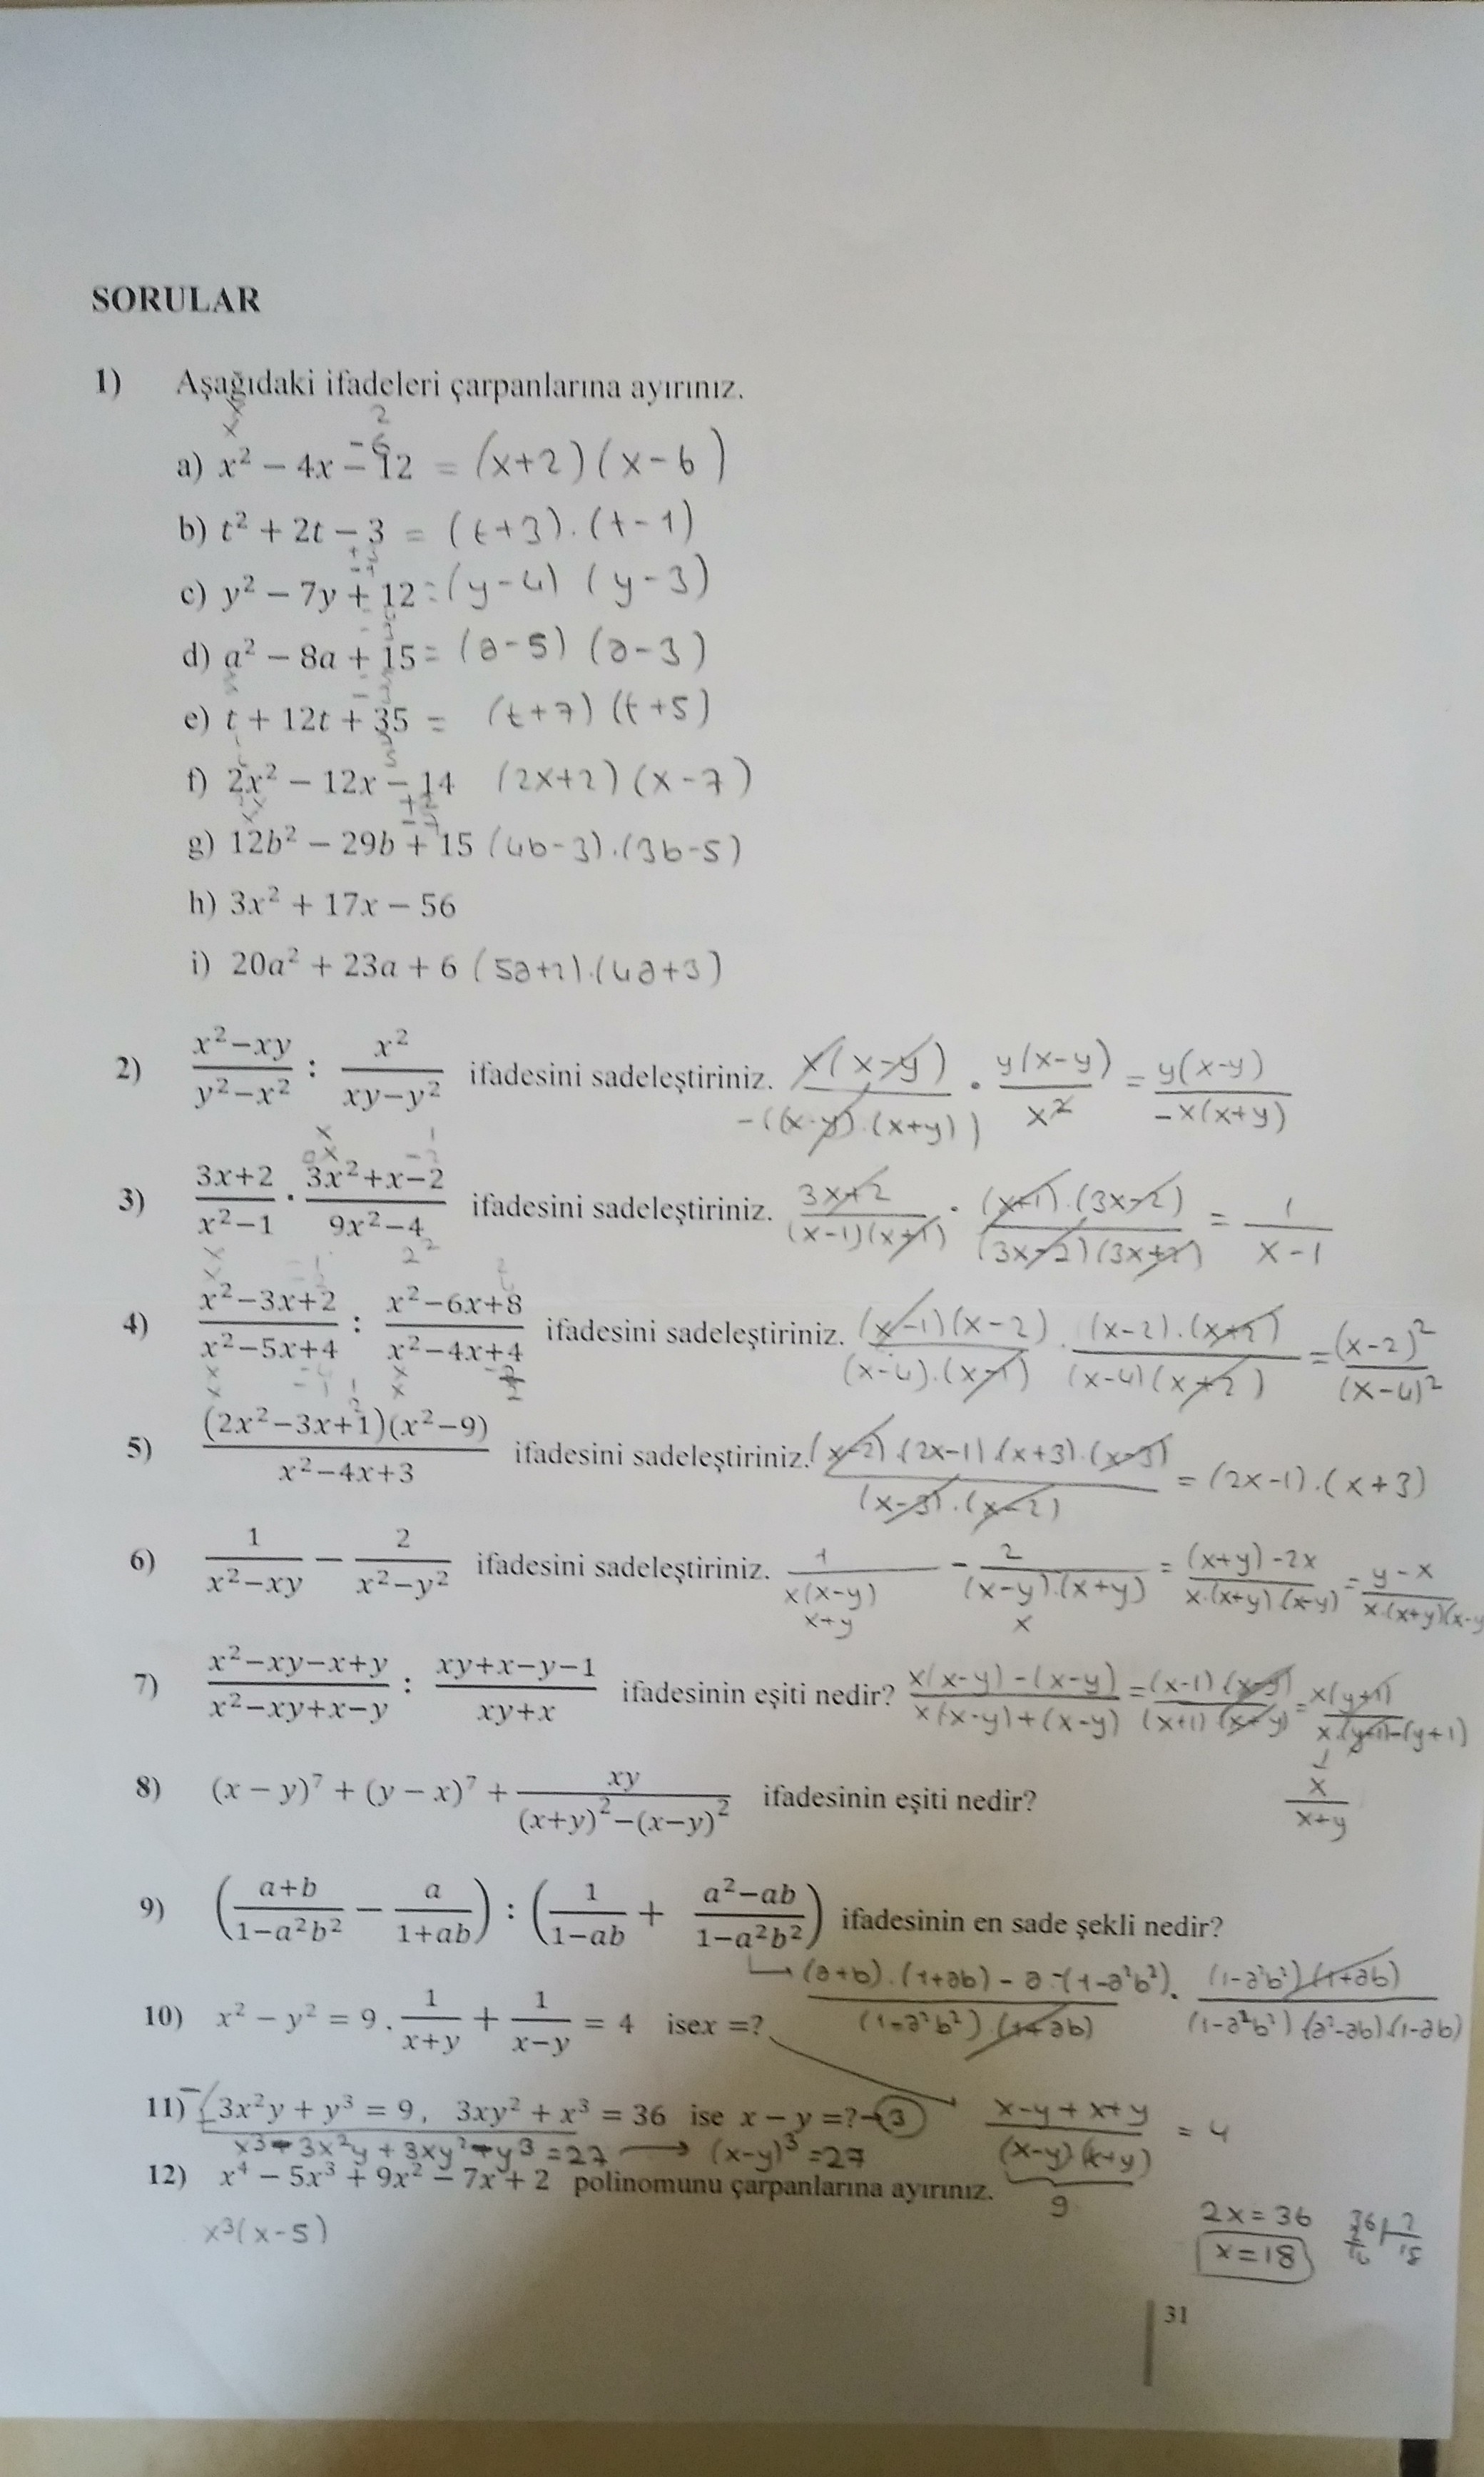 SORULAR
1) Aşağıdaki ifadeleri çarpanlarına ayırınız.
a) x² − 4x − 12 = (x+2)(x-6)
b) t² + 2t − 3 = (t+3).(t-1)
c) y² − 7y + 12 = (y-4) (y-3)
d) a² − 8a + 15 = (a-5) (a-3)
e) t + 12t + 35 = (t+7) (t+5)
f) 2x² − 12x − 14 (2x+2)(x-7)
g) 12b² − 29b + 15 (4b-3).(3b-5)
h) 3x² + 17x − 56
i) 20a² + 23a + 6 (5a+2).(4a+3)
2) (x²−xy)/(y²−x²) : x²/(xy−y²) ifadesini sadeleştiriniz. x(x-y)/-((x-y).(x+y)) . y(x-y)/x² = y(x-y)/-x(x+y)
3) (3x+2)/(x²−1) . (3x²+x−2)/(9x²−4) ifadesini sadeleştiriniz. 3x+2/(x-1)(x+1) . (x+1).(3x-2)/(3x-2)(3x+2) = 1/x-1
4) (x²−3x+2)/(x²−5x+4) : (x²−6x+8)/(x²−4x+4) ifadesini sadeleştiriniz. (x-1)(x-2)/(x-4).(x-1) . (x-2).(x+2)/(x-4)(x+2) = (x-2)²/(x-4)²
5) (2x²−3x+1)(x²−9)/(x²−4x+3) ifadesini sadeleştiriniz. (x-2).(2x-1).(x+3).(x-3)/(x-3).(x-2) = (2x-1).(x+3)
6) 1/(x²−xy) − 2/(x²−y²) ifadesini sadeleştiriniz. 1/x(x-y) - 2/(x-y).(x+y) = (x+y)-2x/x.(x+y).(x-y) = y-x/x.(x+y)(x-y
x+y x
7) (x²−xy−x+y)/(x²−xy+x−y) : (xy+x−y−1)/(xy+x) ifadesinin eşiti nedir? x(x-y)-(x-y)/x(x-y)+(x-y) = (x-1).(x-y)/(x+1).(x+y) = x(y+1)/x.(y+1)-(y+1)
8) (x − y)⁷ + (y − x)⁷ + xy/((x+y)²−(x−y)²) ifadesinin eşiti nedir? x/x+y
9) ((a+b)/(1−a²b²) − a/(1+ab)) : (1/(1−ab) + (a²−ab)/(1−a²b²)) ifadesinin en sade şekli nedir?
→ (a+b).(1+ab)-a.(1-a²b²)/(1-a²b²).(1+ab) . (1-a²b²)(1+ab)/(1-a²b²).(a²-ab).(1-ab)
10) x² − y² = 9 . 1/(x+y) + 1/(x−y) = 4 isex =?
x-y+x+y/(x-y)(x+y) = 4
9
2x=36
x=18
11) 3x²y + y³ = 9, 3xy² + x³ = 36 ise x − y =? → 3
x³-3x²y+3xy²-y³=27 → (x-y)³=27
12) x⁴ − 5x³ + 9x² − 7x + 2 polinomunu çarpanlarına ayırınız.
x³(x-5)
31